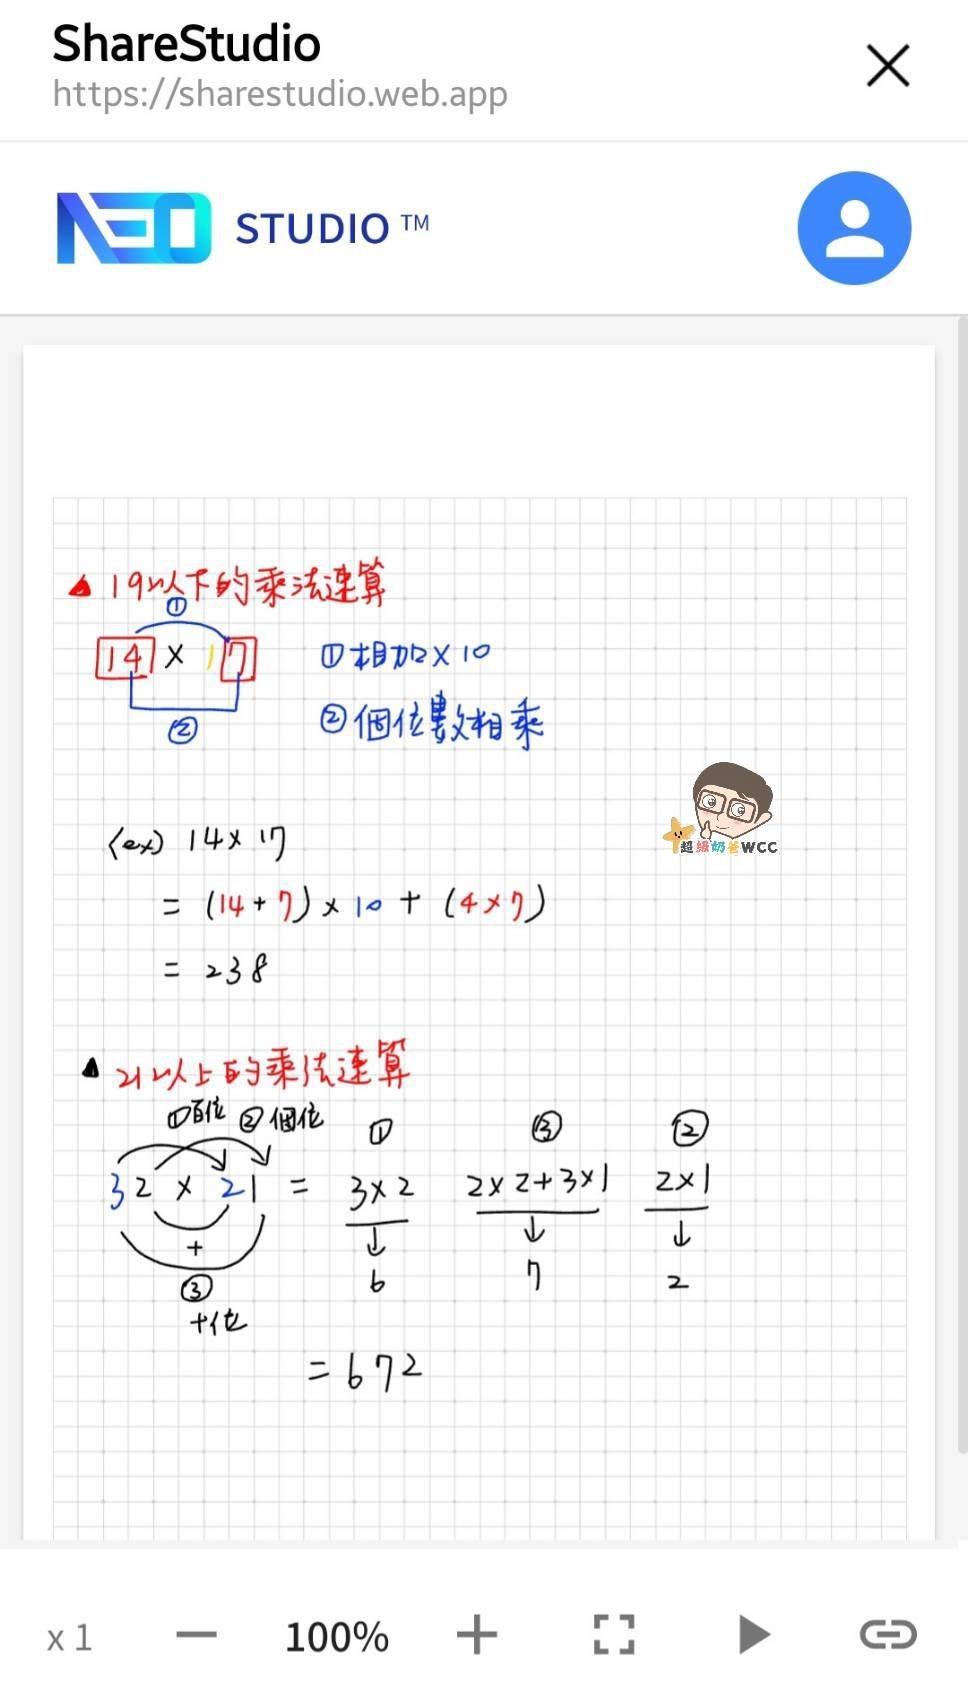 ShareStudio
https://sharestudio.web.app
NEO STUDIO ™
▲ 19以下的乘法速算
①
14 × 17 ①相加×10
② ②個位數相乘
超級奶爸WCC
(ex) 14×17
= (14+7)×10+(4×7)
= 238
▲ 21以上的乘法速算
①百位 ②個位 ① ③ ②
32 × 21 = 3×2 2×2+3×1 2×1
+ ↓ ↓ ↓
③ 6 7 2
十位
=672
x 1 — 100% +